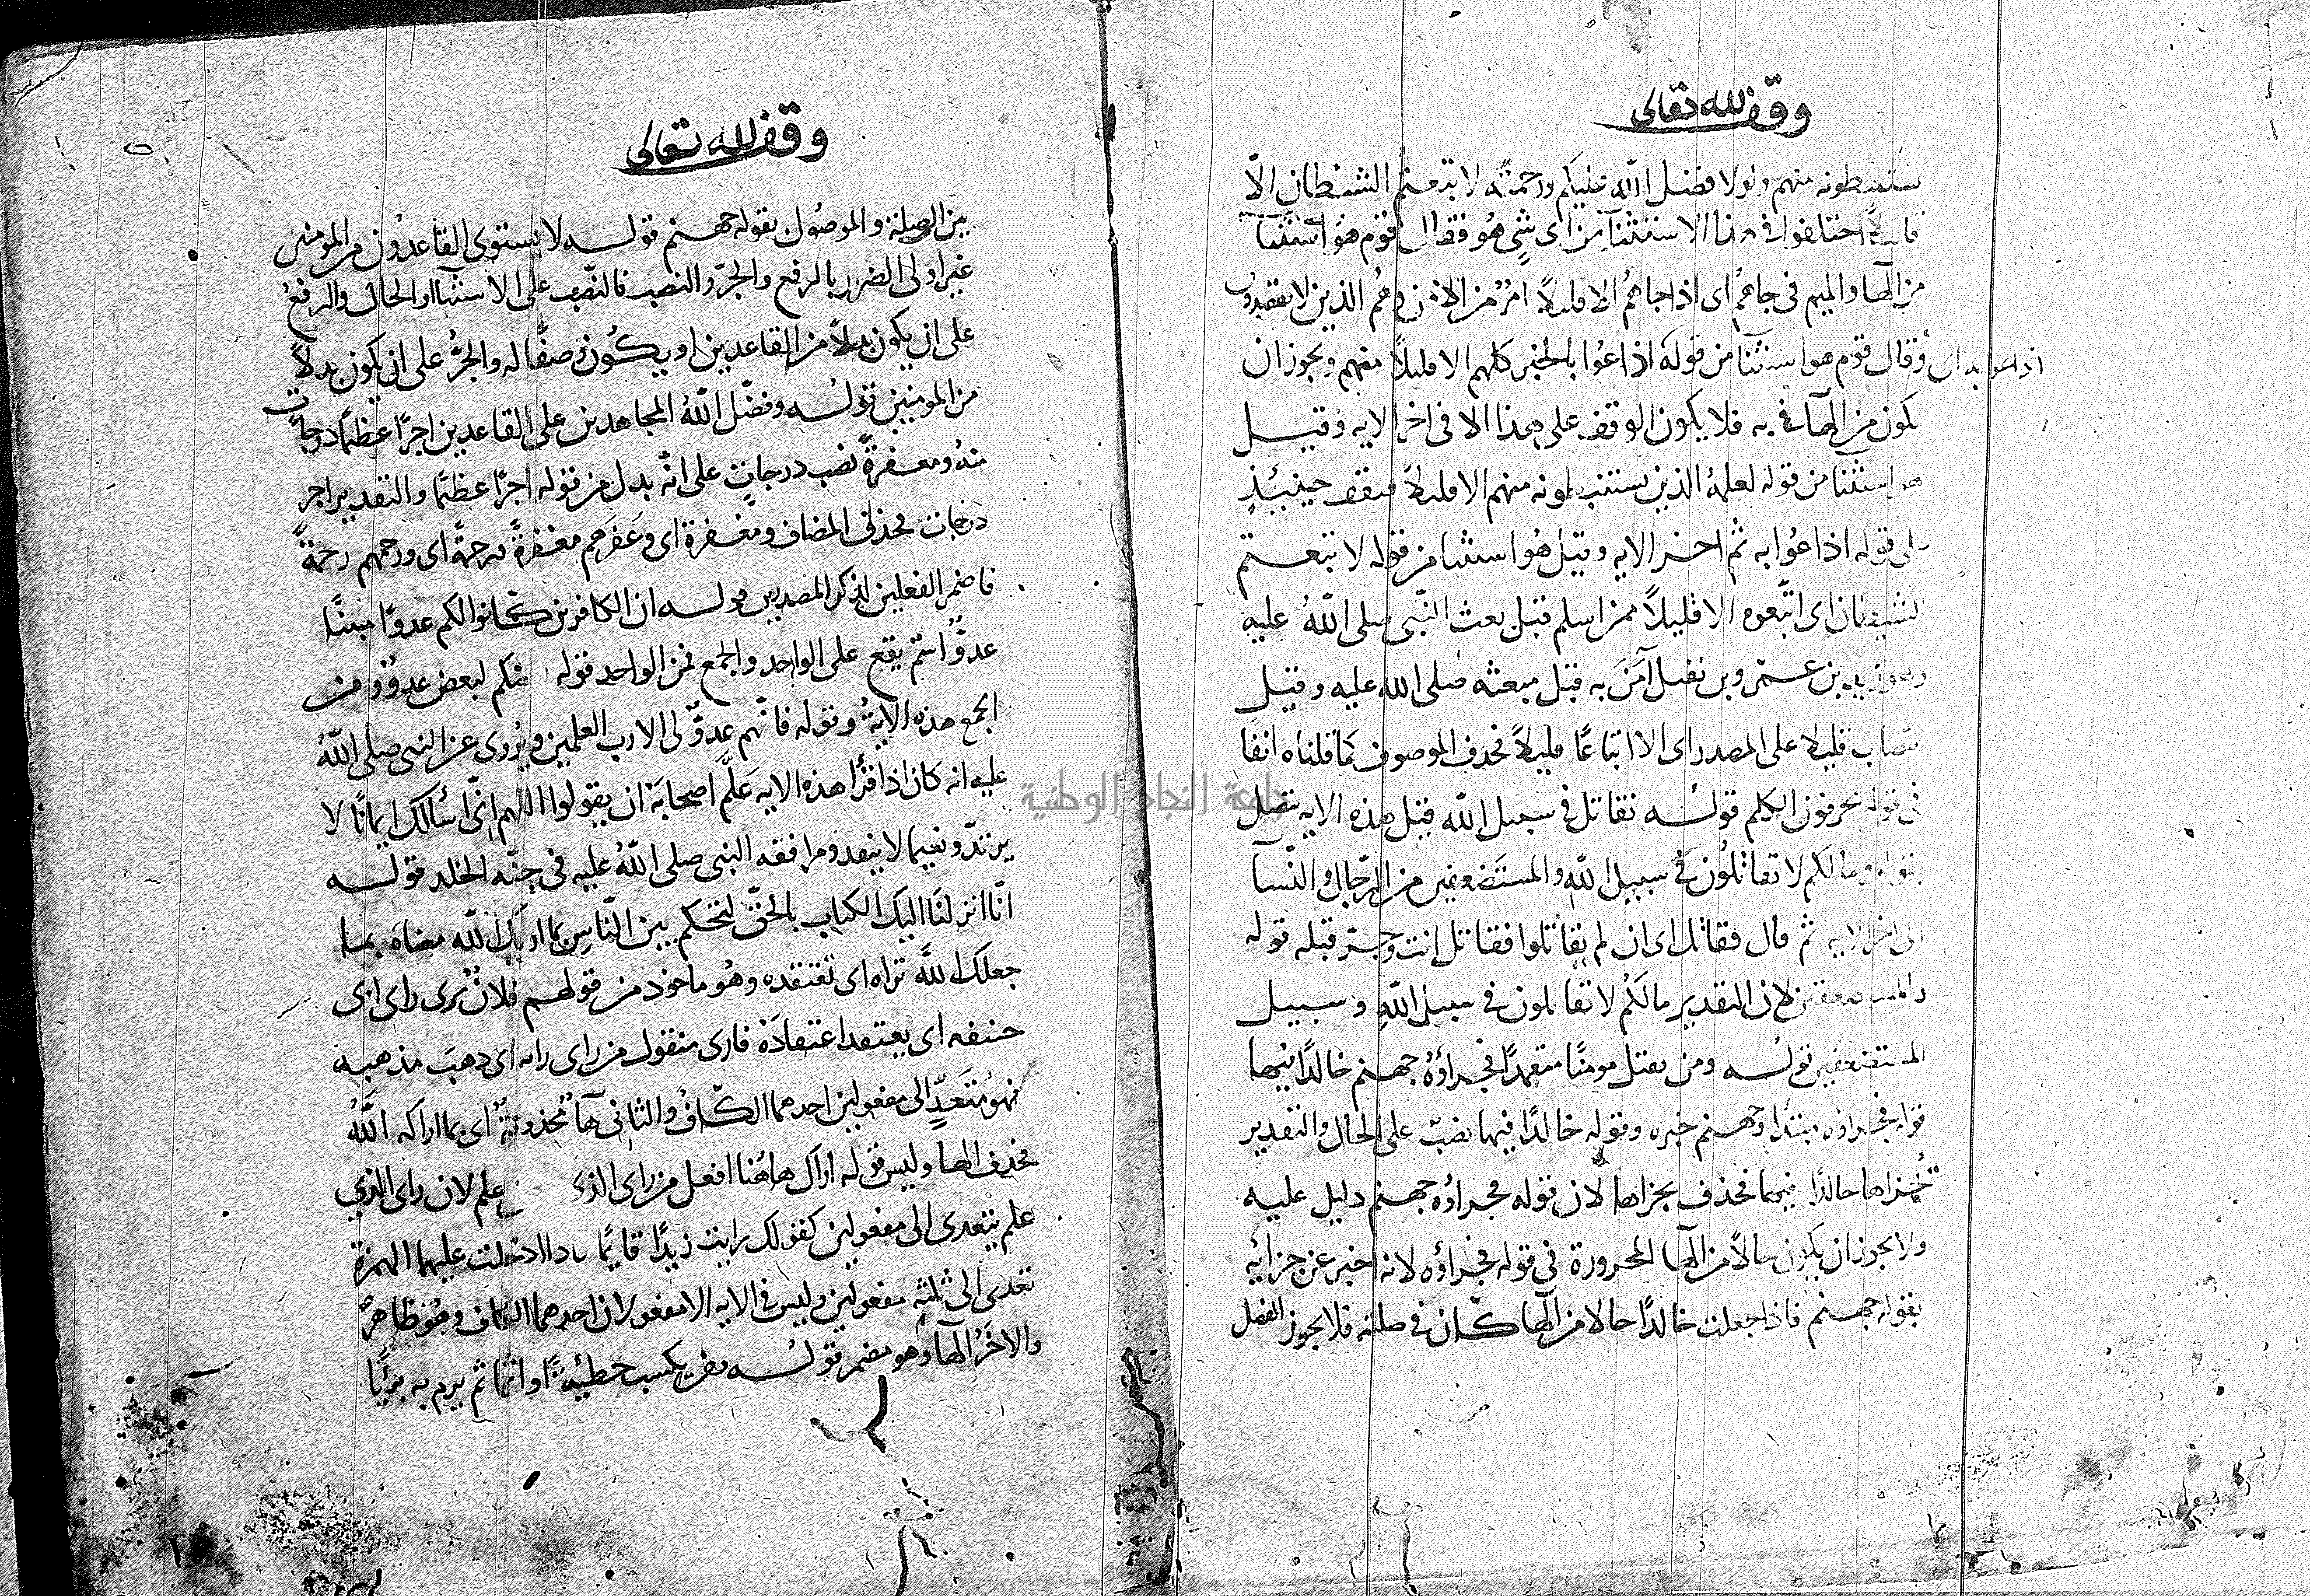 وقف لله تعالى
يستنبطونه منهم ولولا فضل الله عليكم ورحمته لاتبعتم الشيطان الّا
قليلاً اختلفوا فى هذا الاستثنآ من اى شىٍ هو فقال قوم هو استثنآ
من الها والميم فى جاهُم اى اذا جاهُم الا قليلاً امرٌ من الامن وهُم الذين لا يقصدون
اذاعو به اى وقال قوم هو استثنآ من قوله اذاعُوا بالخبر كلهم الا قليلاً منهم ويجوز ان
يكون من الهآ فى به فلا يكون الوقف على هذا الا فى اخر الايه وقيل
هو استثنآ من قوله لعلمهُ الذين يستنبطونه منهم الا قليلاً فتقف حينئذٍ
على قوله اذاعُوا به ثم اخر الايه وقيل هُو استثنا من قوله لاتبعتم
الشيطان اى اتّبعوه الا قليلاً ممن اسلم قبل بعث النّبى صلى اللهُ عليه
وهو زيد بن عمرو بن نفيل آمَنَ به قبل مبعثه صلى الله عليه وقيل
نتصاب قليلا على المصدر اى الا اتباعًا قليلاً فحذف الموصوف كما قلناه انفا
فى قوله يحرفون الكلم قولـه تقاتل فى سبيل الله قبل هذه الايه يتصل
بقوله ومالكم لا تقاتلُون فى سبيل اللهِ والمستضعفين من الرّجال والنّسآ
الى اخر الايه ثم قال فقاتل اى ان لم يقاتلوا فقاتل انت وجرّ قبله قوله
والمستضعفين لان التقدير مالكُم لا تقاتلون فى سبيل اللهِ وسبيل
المستضعفين قولـه ومن يقتل مومنًا متعمدًا فجزاؤهُ جهنم خالدًا فيها
قوله فجزاؤه مبتدا وجهنم خبره وقوله خالدًا فيها نصبٌ على الحال والتقدير
يُجزاها خالدًا فيها فحذف يجزاها لان قوله فجزاؤه جهنم دليل عليه
ولا يجوز ان يكون حالاً من الها المجرورة فى قوله فجزاؤه لانه اخبر عن جزائه
بقوله جهنم فاذا جعلت خالدًا حالا من الها كان فى صلته فلا يجوز الفصل
وقف لله تعالى
بين الصلة والموصُول بقوله جهنم قولـه لا يستوى القاعدُون من المومنين
غير اولى الضرر بالرفع والجرّ والنصب فالنّصب على الاستثنآ او الحال والرفعُ
على ان يكون بدلاً من القاعدين او يكُون وصفًا له والجرُّ على ان يكون بدلاً
من المومنين قولـه وفضّل اللهُ المجاهدين على القاعدين اجرًا عظيمًا درجاتٍ
منهُ ومغفرةً نصب درجاتٍ على انّه بدل من قوله اجرًا عظيمًا والتقدير اجر
درجات فحذف المضاف ومغفرة اى وغَفرَهم مغفرةً ورحمةً اى ورحمهم رحمةً
فاضمر الفعلين لذكر المصدرين قولـه ان الكافرين كانوا لكم عدوًا مبينًا
عدوٌّ اسْم يقع على الواحد والجمع فمن الواحد قوله بعضكم لبعض عدوٌّ ومن
الجمع هذه الايةُ وقوله فانّهم عدوٌّ لى الا رب العلمين ويُروى عن النبى صلى اللهُ
عليه انه كان اذا قرأ هذه الايه عَلَّم اصحابَهَ ان يقولوا اللهم انى اسألك ايمانًا لا
يرتدّ ونعيما لا ينفد ومرافقه النبى صلى اللهُ عليه فى جنّه الخلد قولـه
انّا انزلنَا اليك الكتاب بالحقّ لتحكم بين النّاسِ بما اريك الله معناهَ بما
جعلك اللهُ تراه اى تعتقده وهُو ماخوذ من قولهم فلانٌ يرى راى ابى
حنيفه اى يعتقد اعتقادَهَ فارى منقول من راى رايه اى ذهبَ مذهبه
فهو متَعَدٍّ الى مفعولين احدهما الكافُ والثانى هآٌ محذوفةٌ اى بما اراكه اللهُ
فحذف الها وليس قوله اراك هاهُنا افعل من راى الذى علم لان راى الذي
علم يتعدى الى مفعولين كقولك رايت زيدًا قايمًا فاذا ادخلت عليها الهمزة
تعدى الى ثلثه مفعولين وليس فى الايه الا مفعولان احدهما الكاف وهُو ظاهرٌ
والاخَرُ الهآ وهو مضمر قولـه ومن يكسب خطيئةً او اثمًا ثم يرم به بريًّا
جامعة النجاح الوطنية